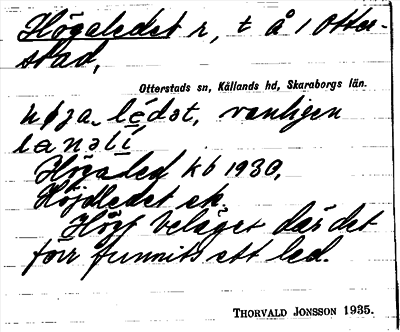 Högaledet r, t å 1 Otter-
stad,
Otterstads sn, Kållands hd, Skaraborgs län.
högaledət, vanligen
Högaled kb 1930,
Höjdledet ek.
Högt beläget där det
förr funnits ett led.
THORVALD JONSSON 1935.